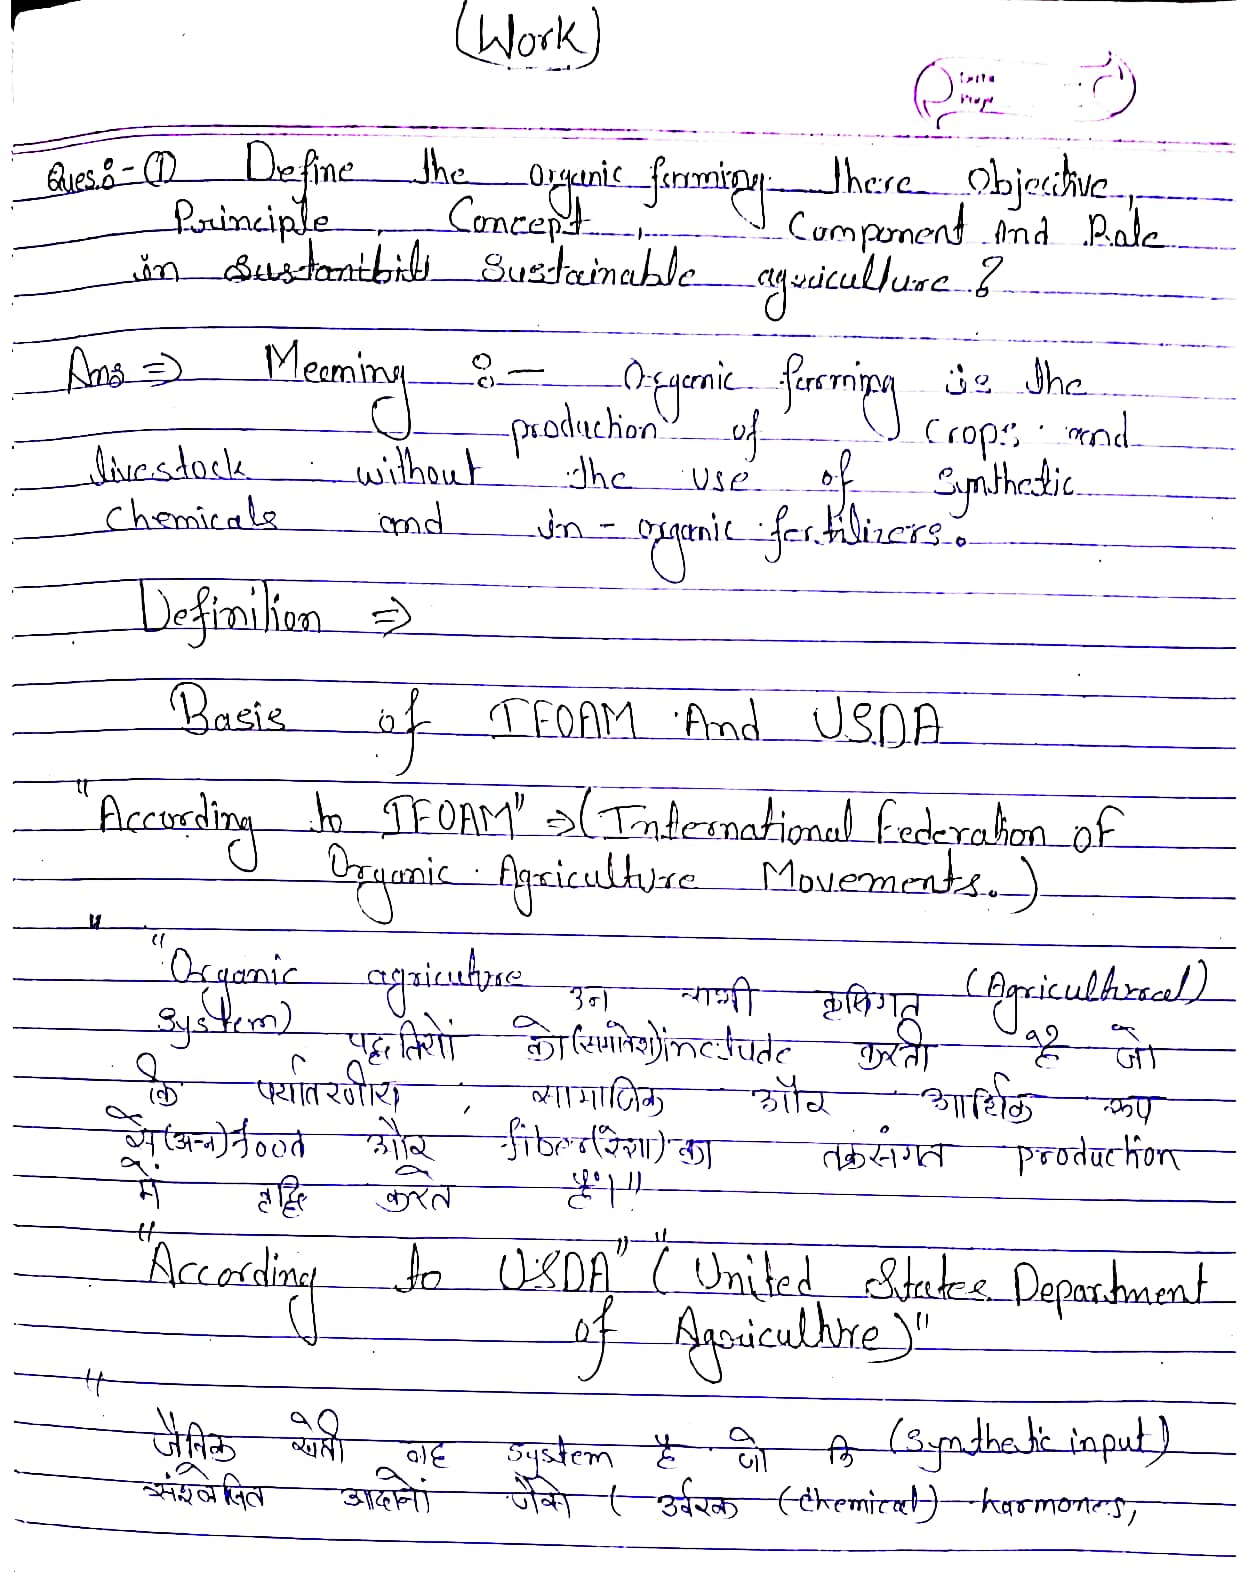 (Work)
Ques:- ① Define the organic farming. there Objective,
Principle, Concept, Component And Role
in Sustantbili Sustainable agriculture?
Ans ⇒ Meaning :- Organic farming is the
production of crops and
livestock without the use of synthetic
chemicals and in-organic fertilizers.
Definition ⇒
Basis of IFOAM And USDA
"According to IFOAM" ⇒ (International Federation of
Organic Agriculture Movements.)
"Organic agricuture उन सभी कृषिगत (Agricultural
system) पद्धतियों को (समावेश) include करती है जो
कि पर्यावरणीय, सामाजिक और आर्थिक रूप
से (अन्न) food और fiber (रेशा) का तर्कसंगत production
में वृद्धि करते हैं।"
"According to USDA" "(United States Department
of Agriculture)"
"जैविक खेती वह system है जो कि (Synthetic input)
संश्लेषित आदानों जैसे (उर्वरक (chemical) harmones,